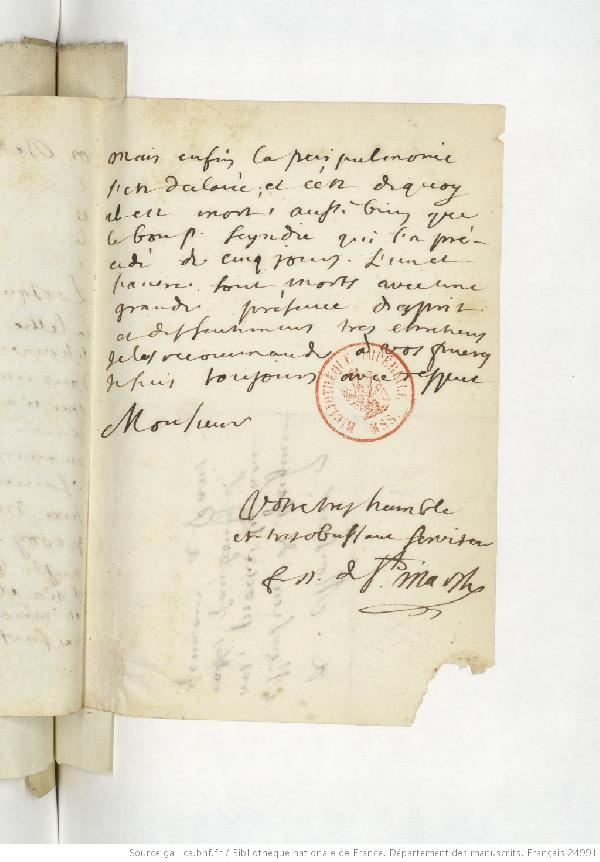 mais enfin la peripulmonie
s'est declarée, et c'est dequoy
il est mort, aussi bien que
le bon P. Syndic qui l'a pré-
cedé de cinq jours. L'un et
l'autre sont morts avec une
grande présence d'esprit
et des sentimens tres chretiens
je les recommande à vos prieres
je suis toujours avec respect
Monsieur
BIBLIOTHÈQUE IMPÉRIALE MSS.
Votre tres humble
et tres obeissant serviteur
de Ste Marthe
Source gallica.bnf.fr / Bibliothèque nationale de France. Département des manuscrits. Français 24991